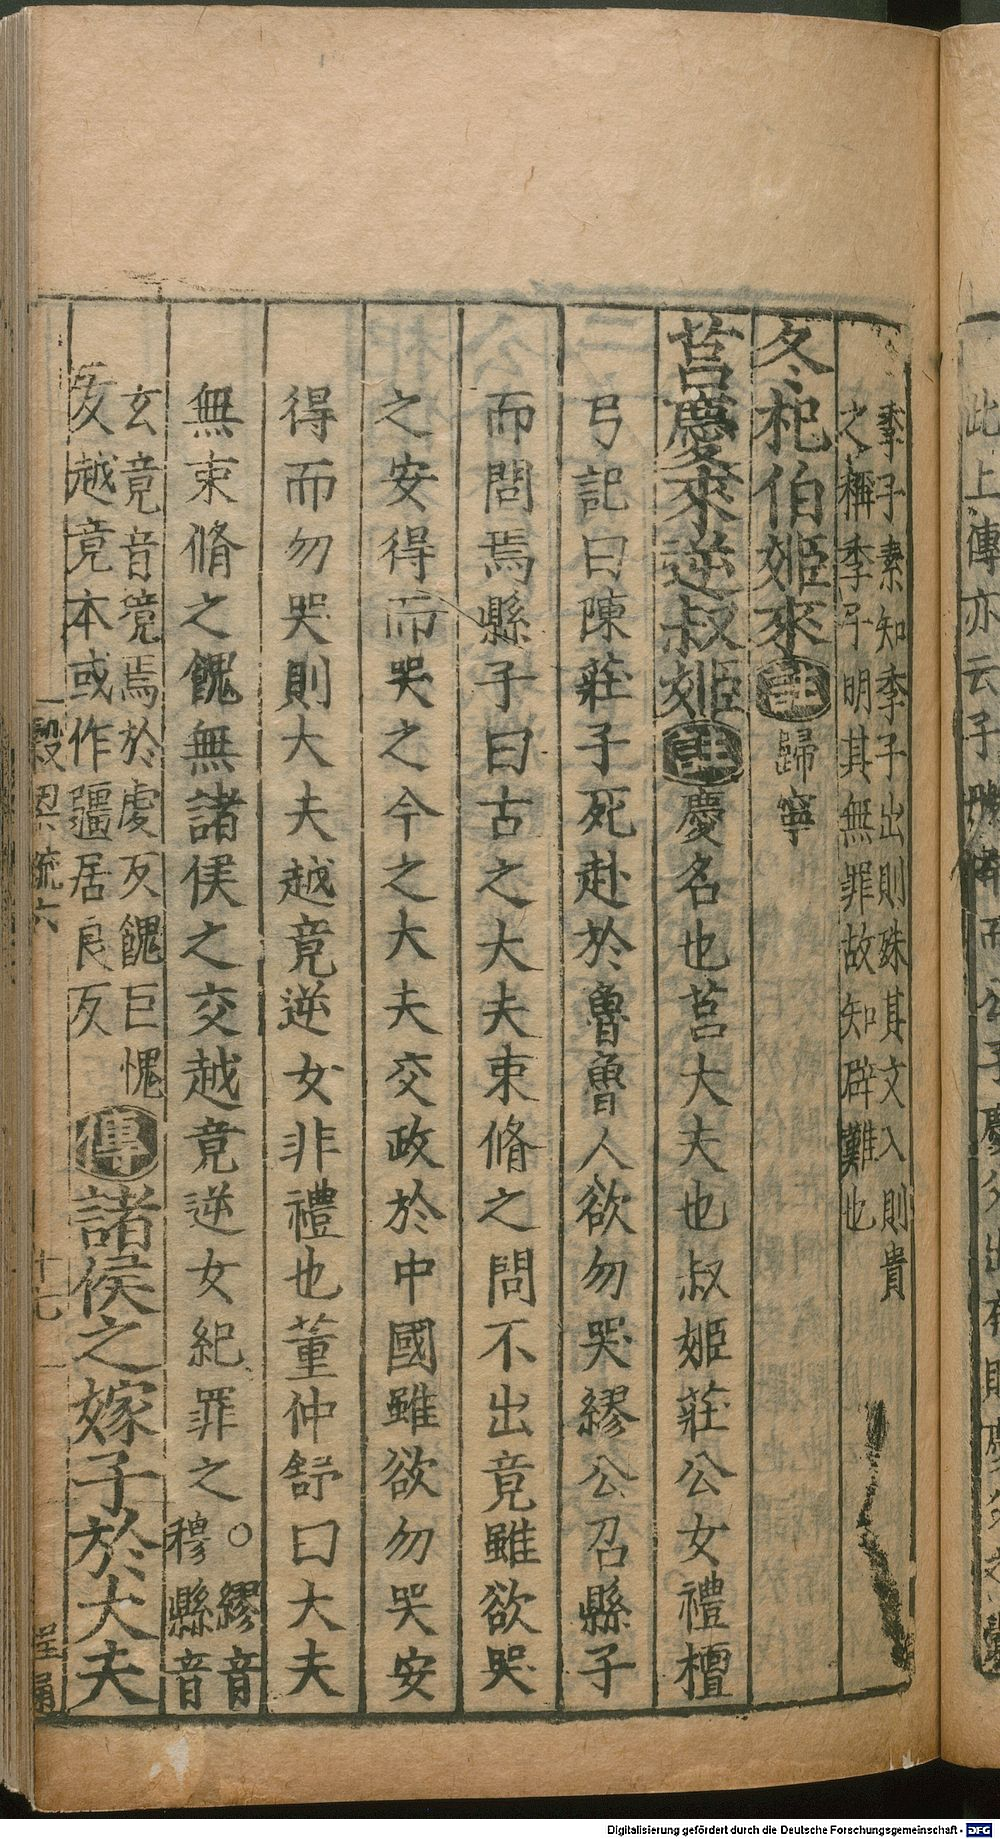 此上傳亦云子
季子素知季子出則殊其文入則貴
之稱季子明其無罪故知辟難也
冬杞伯姬來註歸寧
莒慶來逆叔姬註慶名也莒大夫也叔姬莊公女禮檀
弓記曰陳莊子死赴於魯魯人欲勿哭繆公召縣子
而問焉縣子曰古之大夫束脩之問不出竟雖欲哭
之安得而哭之今之大夫交政於中國雖欲勿哭安
得而勿哭則大夫越竟逆女非禮也董仲舒曰大夫
無束脩之餽無諸侯之交越竟逆女紀罪之○繆音
穆縣音
玄竟音境焉於虔反餽巨愧
反越竟本或作疆居良反傳諸侯之嫁子於大夫
穀梁疏六
十七
Digitalisierung gefördert durch die Deutsche Forschungsgemeinschaft - DFG